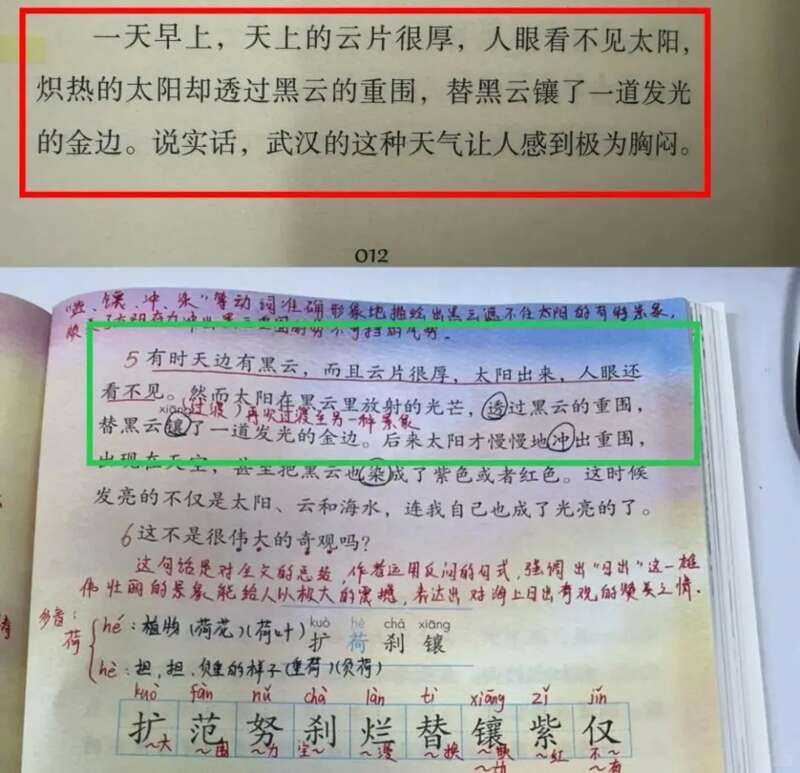 一天早上，天上的云片很厚，人眼看不见太阳，
炽热的太阳却透过黑云的重围，替黑云镶了一道发光
的金边。说实话，武汉的这种天气让人感到极为胸闷。
012
"透、镶、冲、染"等动词准确形象地描绘出黑云遮不住太阳的奇特景象，
5 有时天边有黑云，而且云片很厚，太阳出来，人眼还
看不见。然而太阳在黑云里放射的光芒，透过黑云的重围，
xiāng (过渡) 再次过渡至另一种景象
替黑云镶了一道发光的金边。后来太阳才慢慢地冲出重围，
出现在天空，甚至把黑云也染成了紫色或者红色。这时候
发亮的不仅是太阳、云和海水，连我自己也成了光亮的了。
6 这不是很伟大的奇观吗？
这句话是对全文的总结，作者运用反问的句式，强调出"日出"这一雄
伟壮丽的景象能给人以极大的震撼，表达出对海上日出奇观的赞美之情.
多音：
荷
hé：植物(荷花)(荷叶)
kuò hè chà xiāng
扩 荷 刹 镶
hè：担，担、负重的样子(重荷)(负荷)
kuò fàn nǔ chà làn tì xiāng zǐ jǐn
扩 范 努 刹 烂 替 镶 紫 仅
~大 ~围 ~力 ~漫 ~换 ~嵌 ~红 不~
~有